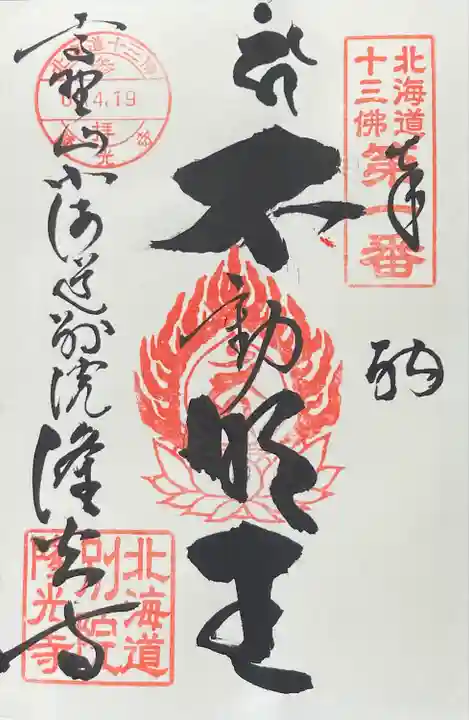 北海道
十三佛
第一番
奉
納
不動明王
高野山北海道別院隆光寺
4.19
北海道
別院
隆光寺